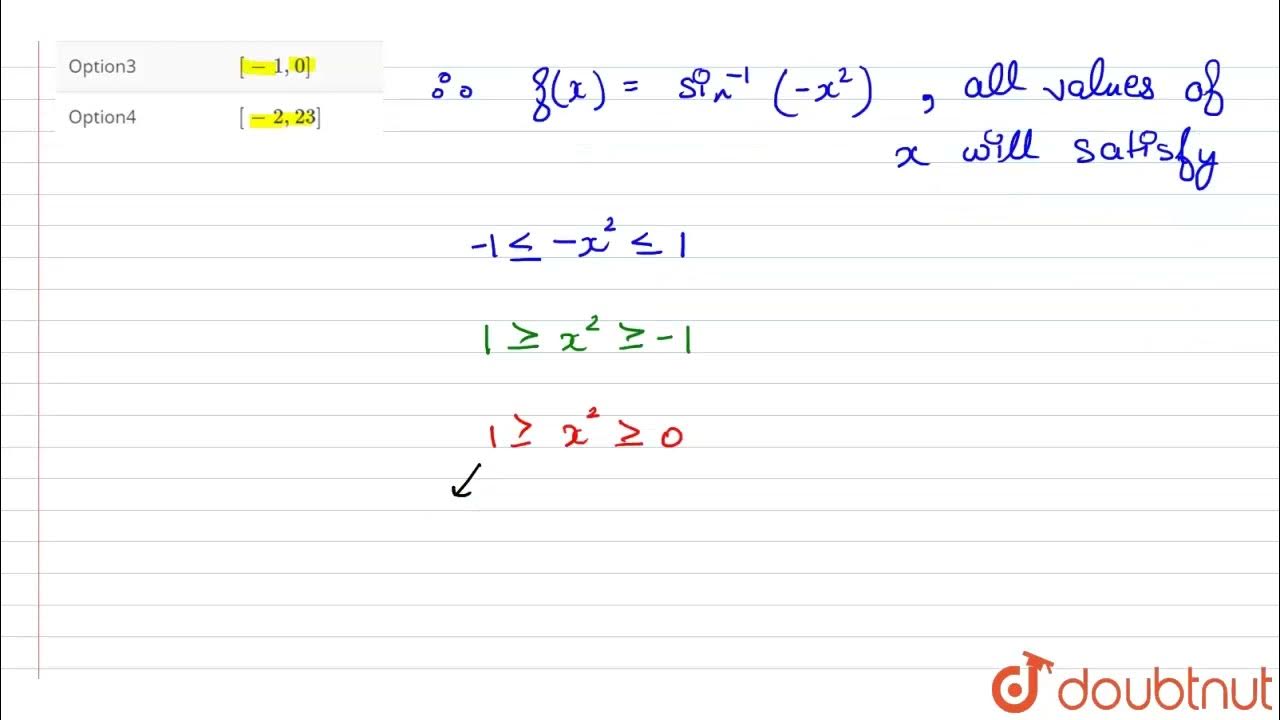 Option3 [ − 1, 0]
Option4 [ − 2, 23]
∴ f(x) = sin⁻¹ (-x²) , all values of
x will satisfy
-1 ≤ -x² ≤ 1
1 ≥ x² ≥ -1
1 ≥ x² ≥ 0
doubtnut